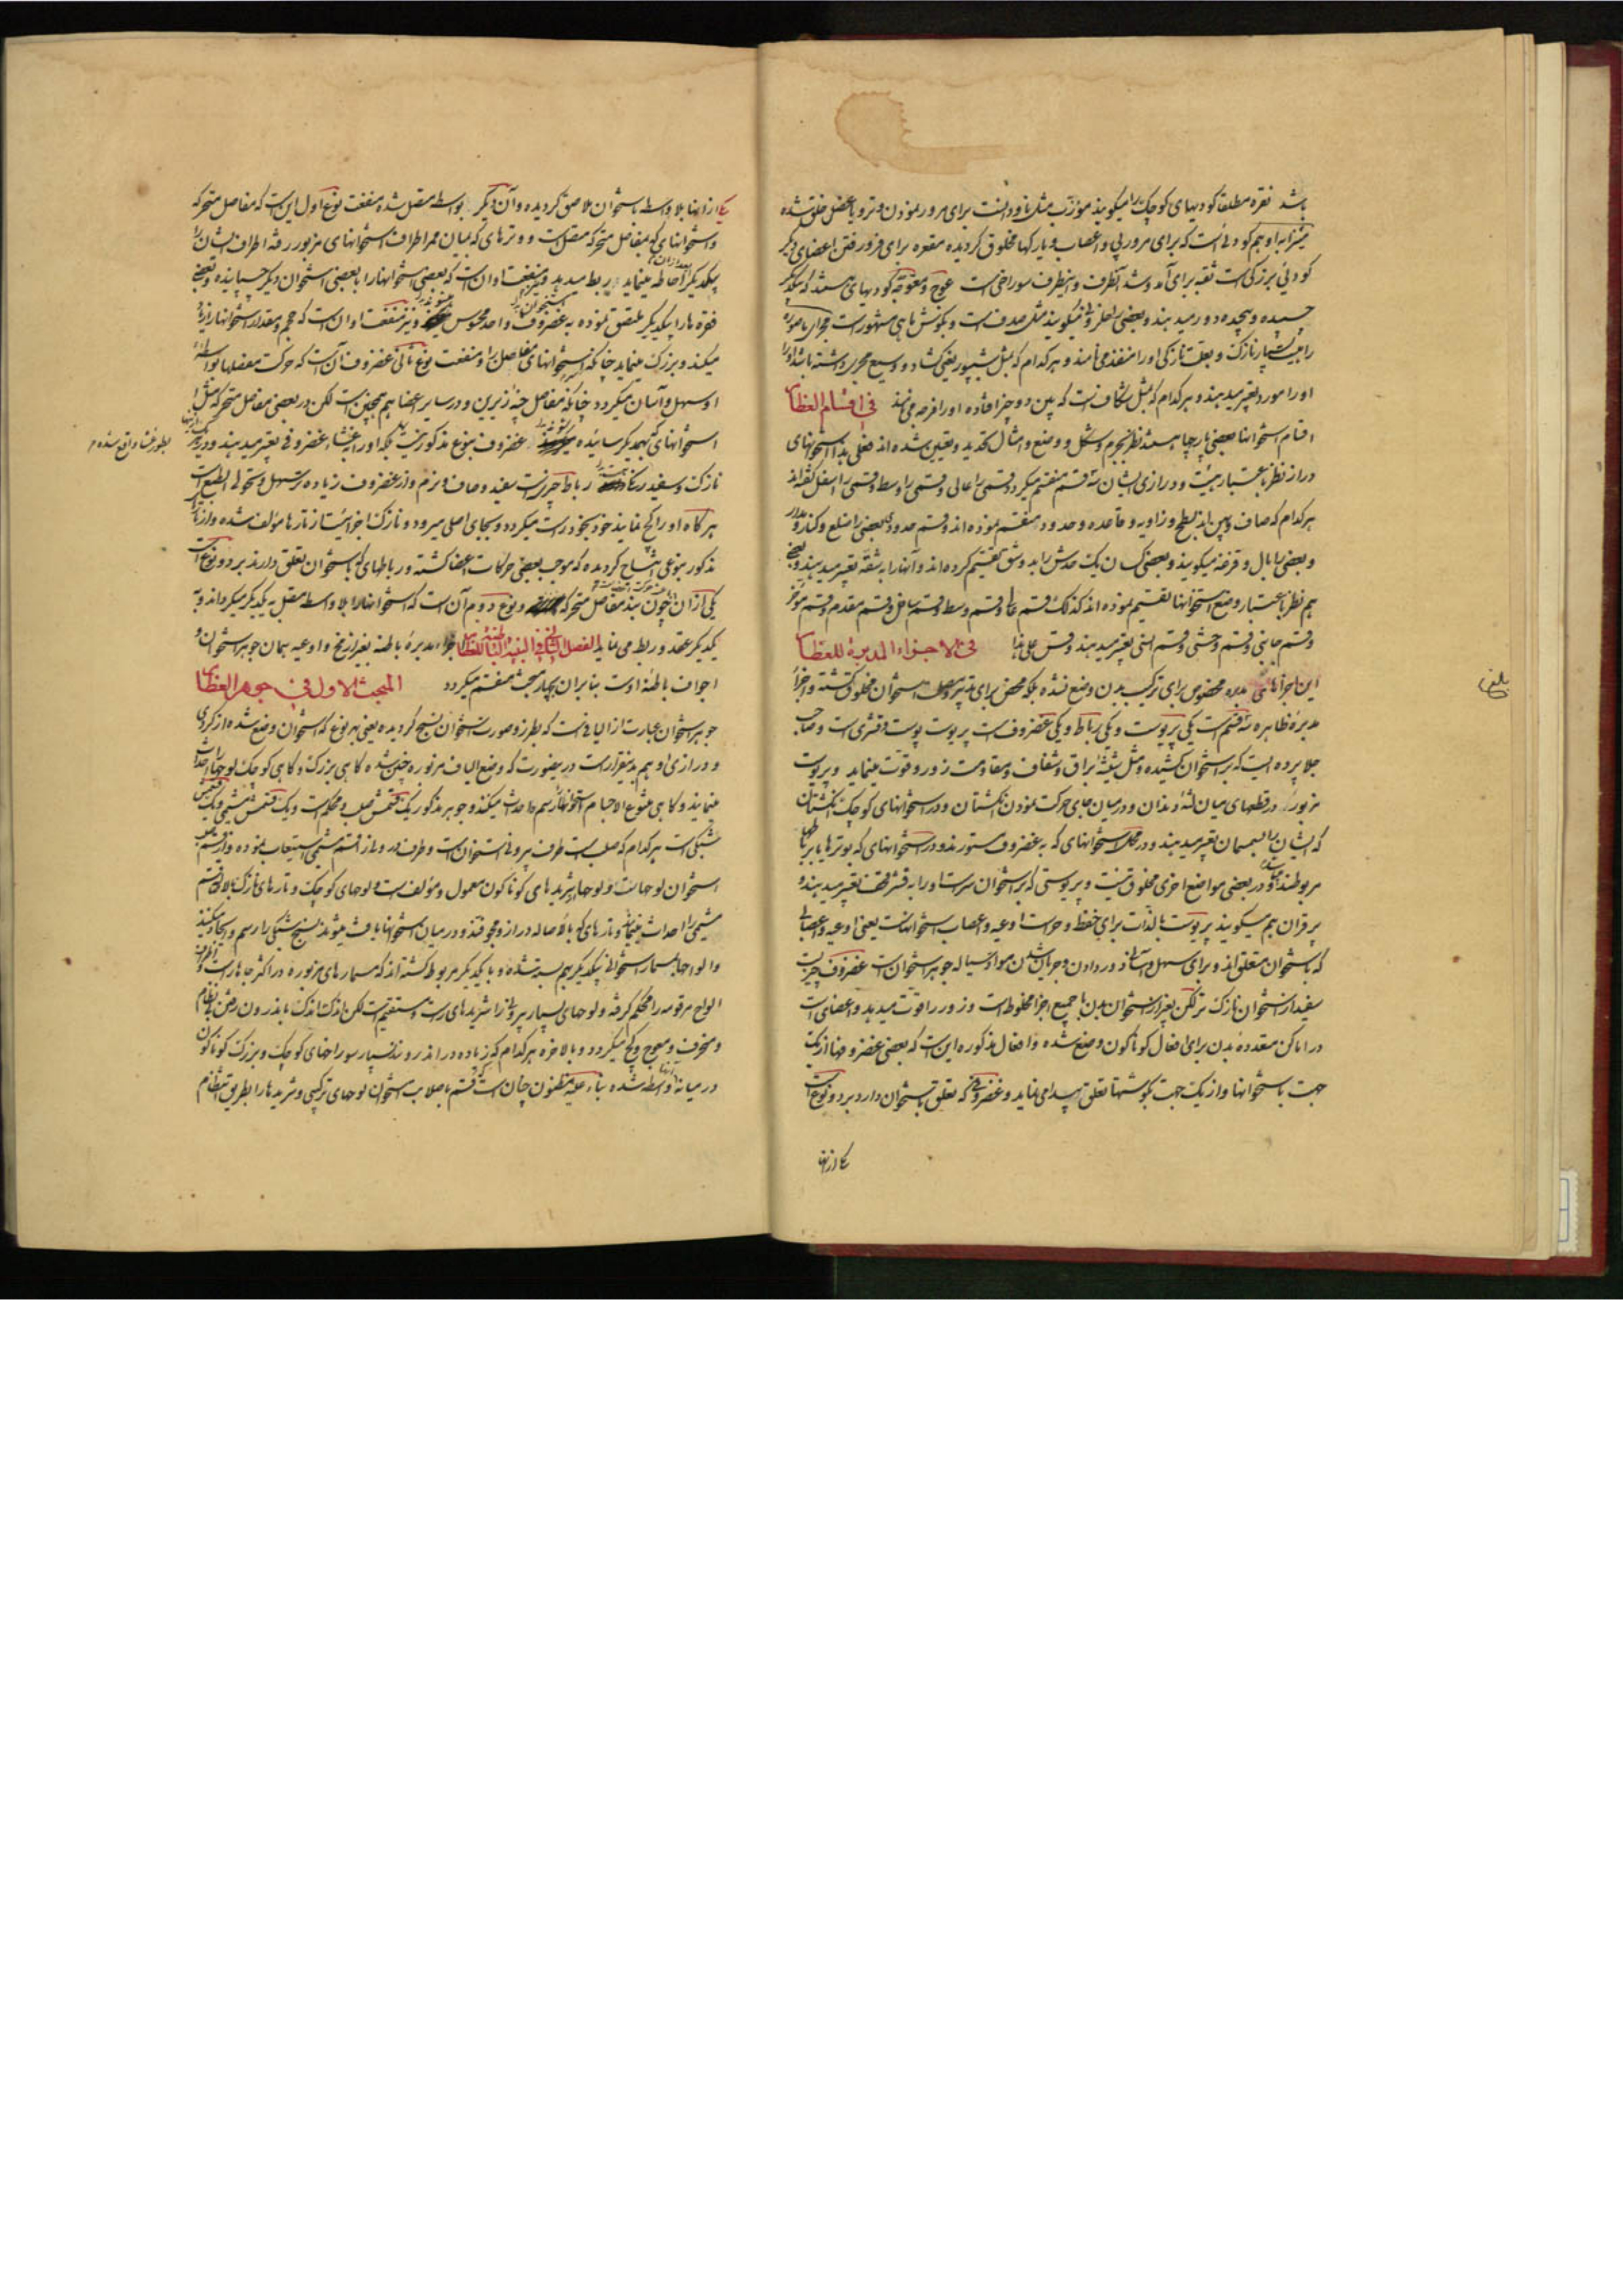 باشد نقره مطلقا کودیهای کوچک را میکویند موزب مثل ناودانست برای مرور نمودن وتر و یا عضل خلق شده
میزابه او هم کودئی است که برای مرور پی و اعصاب و یا رکها مخلوق کردیده مقعره برای فرو رفتن اعضای دیکر
کودئی بزرکی است ثقبه برای آمد و شد آنطرف و اینطرف سوراخی است کودیهای هستند که بیکدیکر
چسپیده و پیچیده دور میدهند و بعضی را حلزونی میکویند مثل صدف است و بکوش ماهی مشهور است مجرای ماصوره
را هیئت بسیار نازک و بعلت نازکی او را منفذ می نامند و هر کدام که مثل شیپور یعنی کشاد و وسیع مجری داشته باشد او را
او را مورد تعبیر میدهند و هر کدام که مثل شکاف است که بین دو چیز افتاده او را فرجه می نامند في اقسام العظام
اقسام استخوانها بعضی پارچها هستند نظر بجرم و شکل و وضع و امثال تحدید و تعیین شده اند فعلی هذا استخوانهای
دراز نظر باعتبار هیئت و درازی ایشان سه قسم منقسم میکردد قسمی را اعالی و قسمی را وسط و قسمی را اسفل کفته اند
هر کدام که صاف و پهن اند بسطح و زاویه و قاعده و حدود منقسم نموده اند و قسم حدودی بعضی را ضلع و کنار و مدور
و بعضی را بال و قرفه میکویند و بعضی کسان یک حدش را بدو شق تقسیم کرده اند و آنها را به شقه تعبیر میدهند و بعضی
هم نظر باعتبار وضع استخوانها تقسیم نموده اند کذلک قسم عالی و قسم وسط و قسم سافل و قسم مقدم و قسم مؤخر
و قسم جانبی و قسم وحشی و قسم انسی تعبیر میدهند و قس علی هذا في الاجزاء المدبرة للعظام
این اجزاهای مدبره مخصوص برای ترکیب بدن وضع نشده بلکه محض برای تدبیر و مصلحت استخوان مخلوق کشته و اجزاء
مدبره ظاهره سه قسم است یکی پریوست و یکی رباط و یکی غضروف است پریوست پوست و قشری است و صاحب
جلا پرده ایست که بر استخوان کشیده و مثل شیشه براق و شفاف و مقاومت زور و قوت مینماید و پریوست
مزبور در قطعهای میان لثه و دندان و در میان جای حرکت نمودن انکشتان و در استخوانهای کوچک انکشتان
که ایشان را سیسمان تعبیر میدهند و در محل استخوانهای که به غضروف مستورند و در استخوانهای که بوترها یا برباطها
مربوطند و در بعضی مواضع اخری مخلوق نیست و پریوستی که بر استخوان سرست او را به قشر قحف تعبیر میدهند و
پرقران هم میکویند پریوست بالذات برای حفظ و حراست اوعیه و اعصاب استخوانهاست یعنی اوعیه و اعصابی
که باستخوان متعلق اند و برای سهل و آسان در دادن و جریان شدن مواد سیاله جوهر استخوان است غضروف چیزیست
سفید از استخوان نازک تر لکن بغیر از استخوان بدن با جمیع اجزا مخلوط است و زور را قوت میدهد و اعضای است
در اماکن متعدده بدن برای افعال کوناکون وضع شده و افعال مذکوره این است که بعضی غضروفها از یک
جهت باستخوانها و از یک جهت بکوشتها تعلق پیدا می نماید و غضروفی که تعلق باستخوان دارد بر دو نوع است
یکی از اینها
یکی از اینها بلا واسطه باستخوان لاصق کردیده و آن دیکر بواسطه متصل شده منفعت نوع اول این است که مفاصل متحرکه
و استخوانهای که بمفاصل متحرکه متصل است و وترهای که بمیان ممر اطراف استخوانهای مزبور رفته اطراف ایشان را
بیکدیکر احاطه مینماید ربط میدهد و نیز منفعت او آن است که بعضی استخوانها را با بعضی استخوان دیکر چسپانیده و بعضی
فقره ها را بیکدیکر ملتصق نموده به غضروف واحد محسوس و نیز منفعت او آن است که حجم و مقدار استخوانها را زیاد
میکند و بزرک مینماید چنانکه استخوانهای مفاصل را و منفعت نوع ثانی غضروف آن است که حرکت مفصلها بواسطه
او سهل و آسان میکردد چنانکه مفاصل چنه زیرین و در سایر اعضا هم همچنین است لکن در بعضی مفاصل متحرکه مثل
استخوانهای که بهمدیکر سائیده میشوند غضروف بنوع مذکور نیست بلکه او را به غشاء غضروفی تعبیر میدهند و در یک
بطور غشا واقع شده
نازک و سفید رنک است رباط چیزیست سفید و صاف و نرم و از غضروف زیاده تر سهل و متحول الطبع است
هر کاه او را کج نمایند خود بخود راست میکردد و بجای اصلی میرود و نازک اجزائیست از تارها مؤلف شده و از تارهای
مذکور بنوعی انتساج کردیده که موجب بعضی حرکات اعضا کشته و رباطهای که باستخوان تعلق دارند بر دو نوع است
یکی از آن چون بند مفاصل متحرکه و نوع دوم آن است که استخوانها را بلا واسطه متصل به یکدیکر میکرداند و به
یکدیکر عقد و ربط می نماید الفصل الثاني في البنية الباطنة للعظام اجزاء مدبره باطنه بغیر از نخ و اوعیه همان جوهر استخوان و
اجواف باطنه اوست بنابر آن بچهار مبحث منقسم میکردد المبحث الاول في جوهر العظام
جوهر استخوان عبارتست از الیافی است که بطرز و صورت استخوان نسج کردیده یعنی بهر نوع که استخوان وضع شده از کردی
و درازی او هم بدینقرار است در یصورت که وضع الیاف مزبوره چنین شده کاهی بزرک و کاهی کوچک لوحها را احداث
مینمایند و کاهی متنوع الاجسام استخوانها را رسم و احداث میکند و جوهر مذکور یک قسمش صلب و محکم است و یک قسمش مشیمی و یک قسمش
شبکی است هر کدام که صلب است طرف بیرونی استخوان است و طرف درونی از قسم مشیمی استیعاب نموده و از قسم صلب
استخوان لوحهاست و لوحها از شریدهای کوناکون معمول و مؤلف است و لوحهای کوچک و تارهای نازک بلا واسطه قسم
مشیمی را احداث مینمایند و تارهای که بالاصاله دراز و مجوفند و در میان استخوانها بافت میشوند نسج شبکی را رسم و ایجاد میکنند
و الواح بمسمار استخوانی بیکدیکر هم بسته شده و با یکدیکر مربوط کشته اند که مسمارهای مزبوره در اکثر جاها راست و اطراف
الواح مرقومه را محکم کرفته و لوحهای بسیار بیرونی از شریدهای راست و مستقیم است لکن اندک اندک باندرون رفتن بی نظام
و منحرف و معوج و کج میکردد و بالاخره هر کدام که زیاده در اندرونند بسیار سوراخهای کوچک و بزرک کوناکون
در میانه واسطه شده بناء علیه مظنون چنان است قسم اصلاب استخوان لوحهای ترکیبی و شریدها را بطریق انتظام